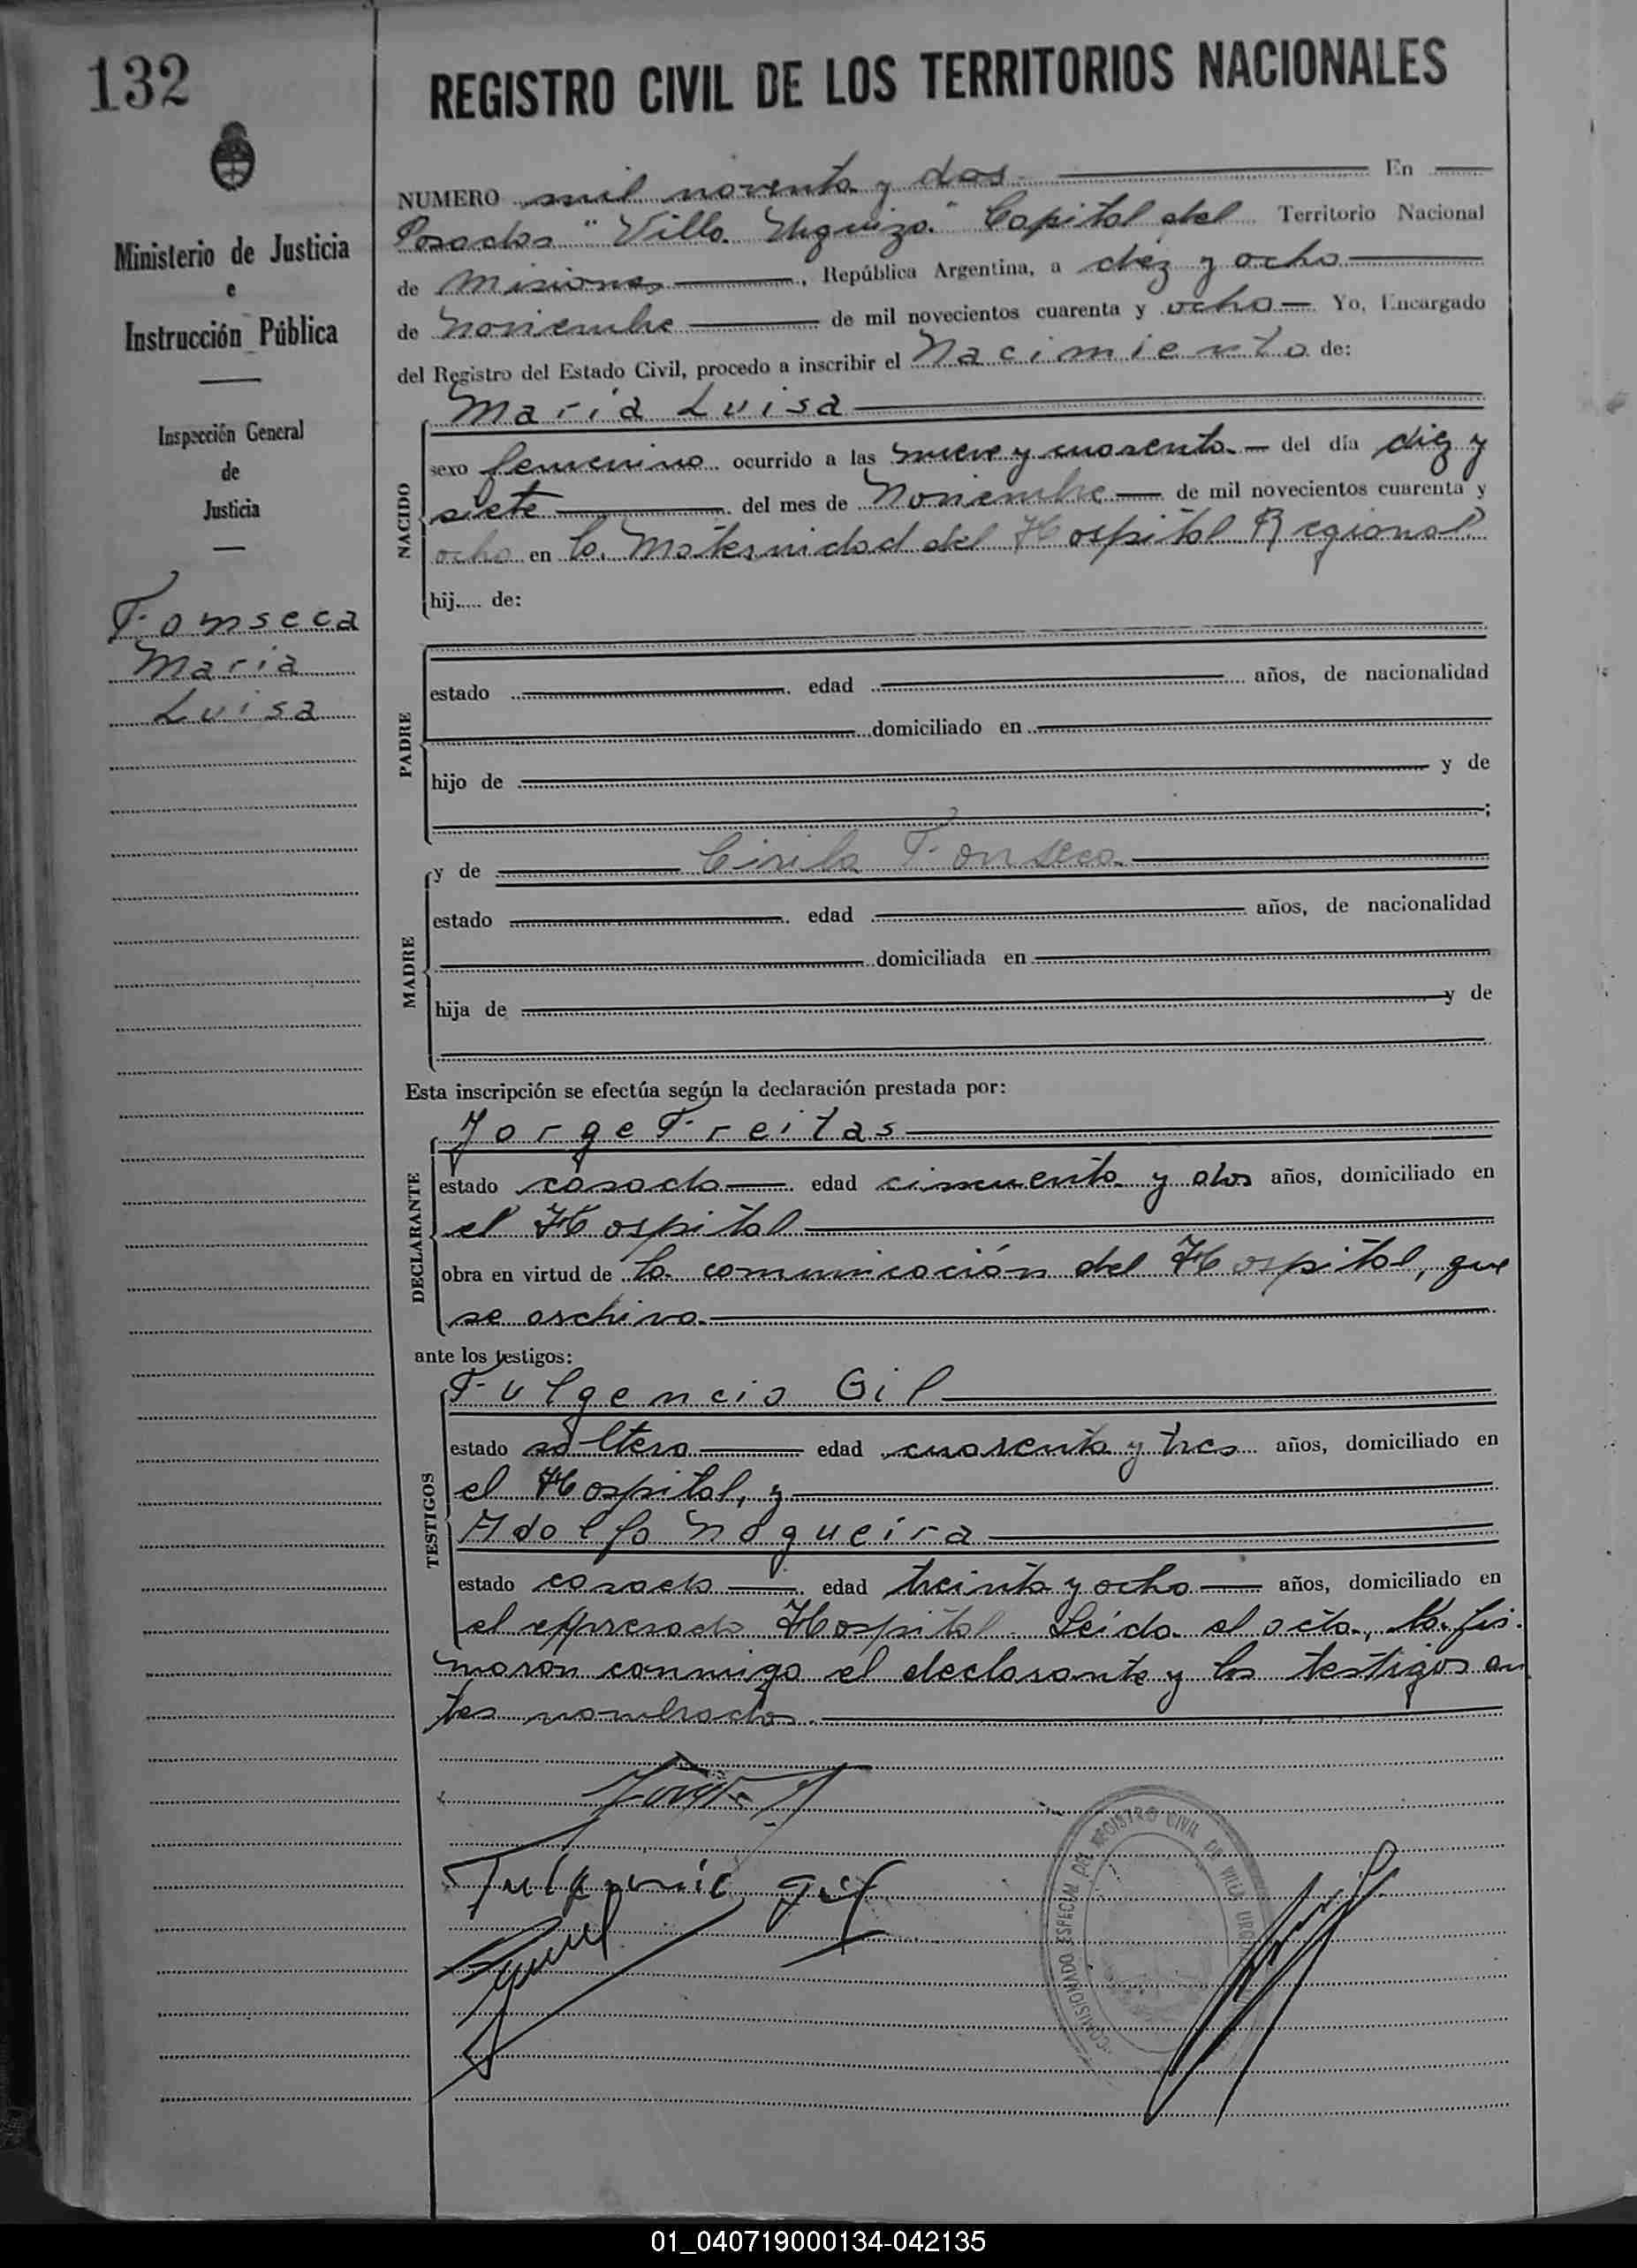 132
REGISTRO CIVIL DE LOS TERRITORIOS NACIONALES
Ministerio de Justicia
e
Instrucción Pública
Inspección General
de
Justicia
Fonseca
Maria
Luisa
NUMERO mil noventa y dos En
Posadas "Villa Urquiza" Capital del Territorio Nacional
de Misiones, República Argentina, a diez y ocho
de Noviembre de mil novecientos cuarenta y ocho Yo, Encargado
del Registro del Estado Civil, procedo a inscribir el Nacimiento de:
NACIDO
María Luisa
sexo femenino ocurrido a las nueve y cuarenta del día diez y
siete del mes de Noviembre de mil novecientos cuarenta y
ocho en la Maternidad del Hospital Regional
hij..... de:
PADRE
estado edad años, de nacionalidad
domiciliado en
hijo de y de
;
MADRE
y de Cirila Fonseca
estado edad años, de nacionalidad
domiciliada en
hija de y de
Esta inscripción se efectúa según la declaración prestada por:
DECLARANTE
Jorge Freitas
estado casado edad cincuenta y dos años, domiciliado en
el Hospital
obra en virtud de la comunicación del Hospital, que
se archiva.
ante los testigos:
TESTIGOS
Fulgencio Gil
estado soltero edad cuarenta y tres años, domiciliado en
el Hospital, y
Adolfo Nogueira
estado casado edad treinta y ocho años, domiciliado en
el expresado Hospital. Leída el acta, la fir-
maron conmigo el declarante y los testigos an
tes nombrados.
Fulgencio Gil
COMISIONADO ESPECIAL DEL REGISTRO CIVIL DE VILLA URQ
01_040719000134-042135